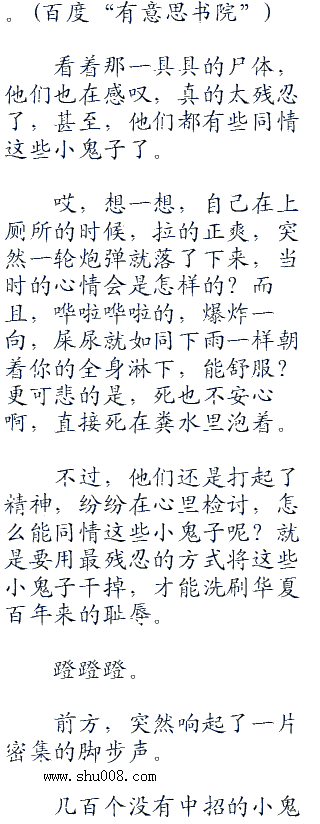 。(百度“有意思书院”)
看着那一具具的尸体，
他们也在感叹，真的太残忍
了，甚至，他们都有些同情
这些小鬼子了。
哎，想一想，自己在上
厕所的时候，拉的正爽，突
然一轮炮弹就落了下来，当
时的心情会是怎样的？而
且，哗啦哗啦的，爆炸一
向，屎尿就如同下雨一样朝
着你的全身淋下，能舒服？
更可悲的是，死也不安心
啊，直接死在粪水里泡着。
不过，他们还是打起了
精神，纷纷在心里检讨，怎
么能同情这些小鬼子呢？就
是要用最残忍的方式将这些
小鬼子干掉，才能洗刷华夏
百年来的耻辱。
蹬蹬蹬。
前方，突然响起了一片
密集的脚步声。
www.shu008.com
几百个没有中招的小鬼